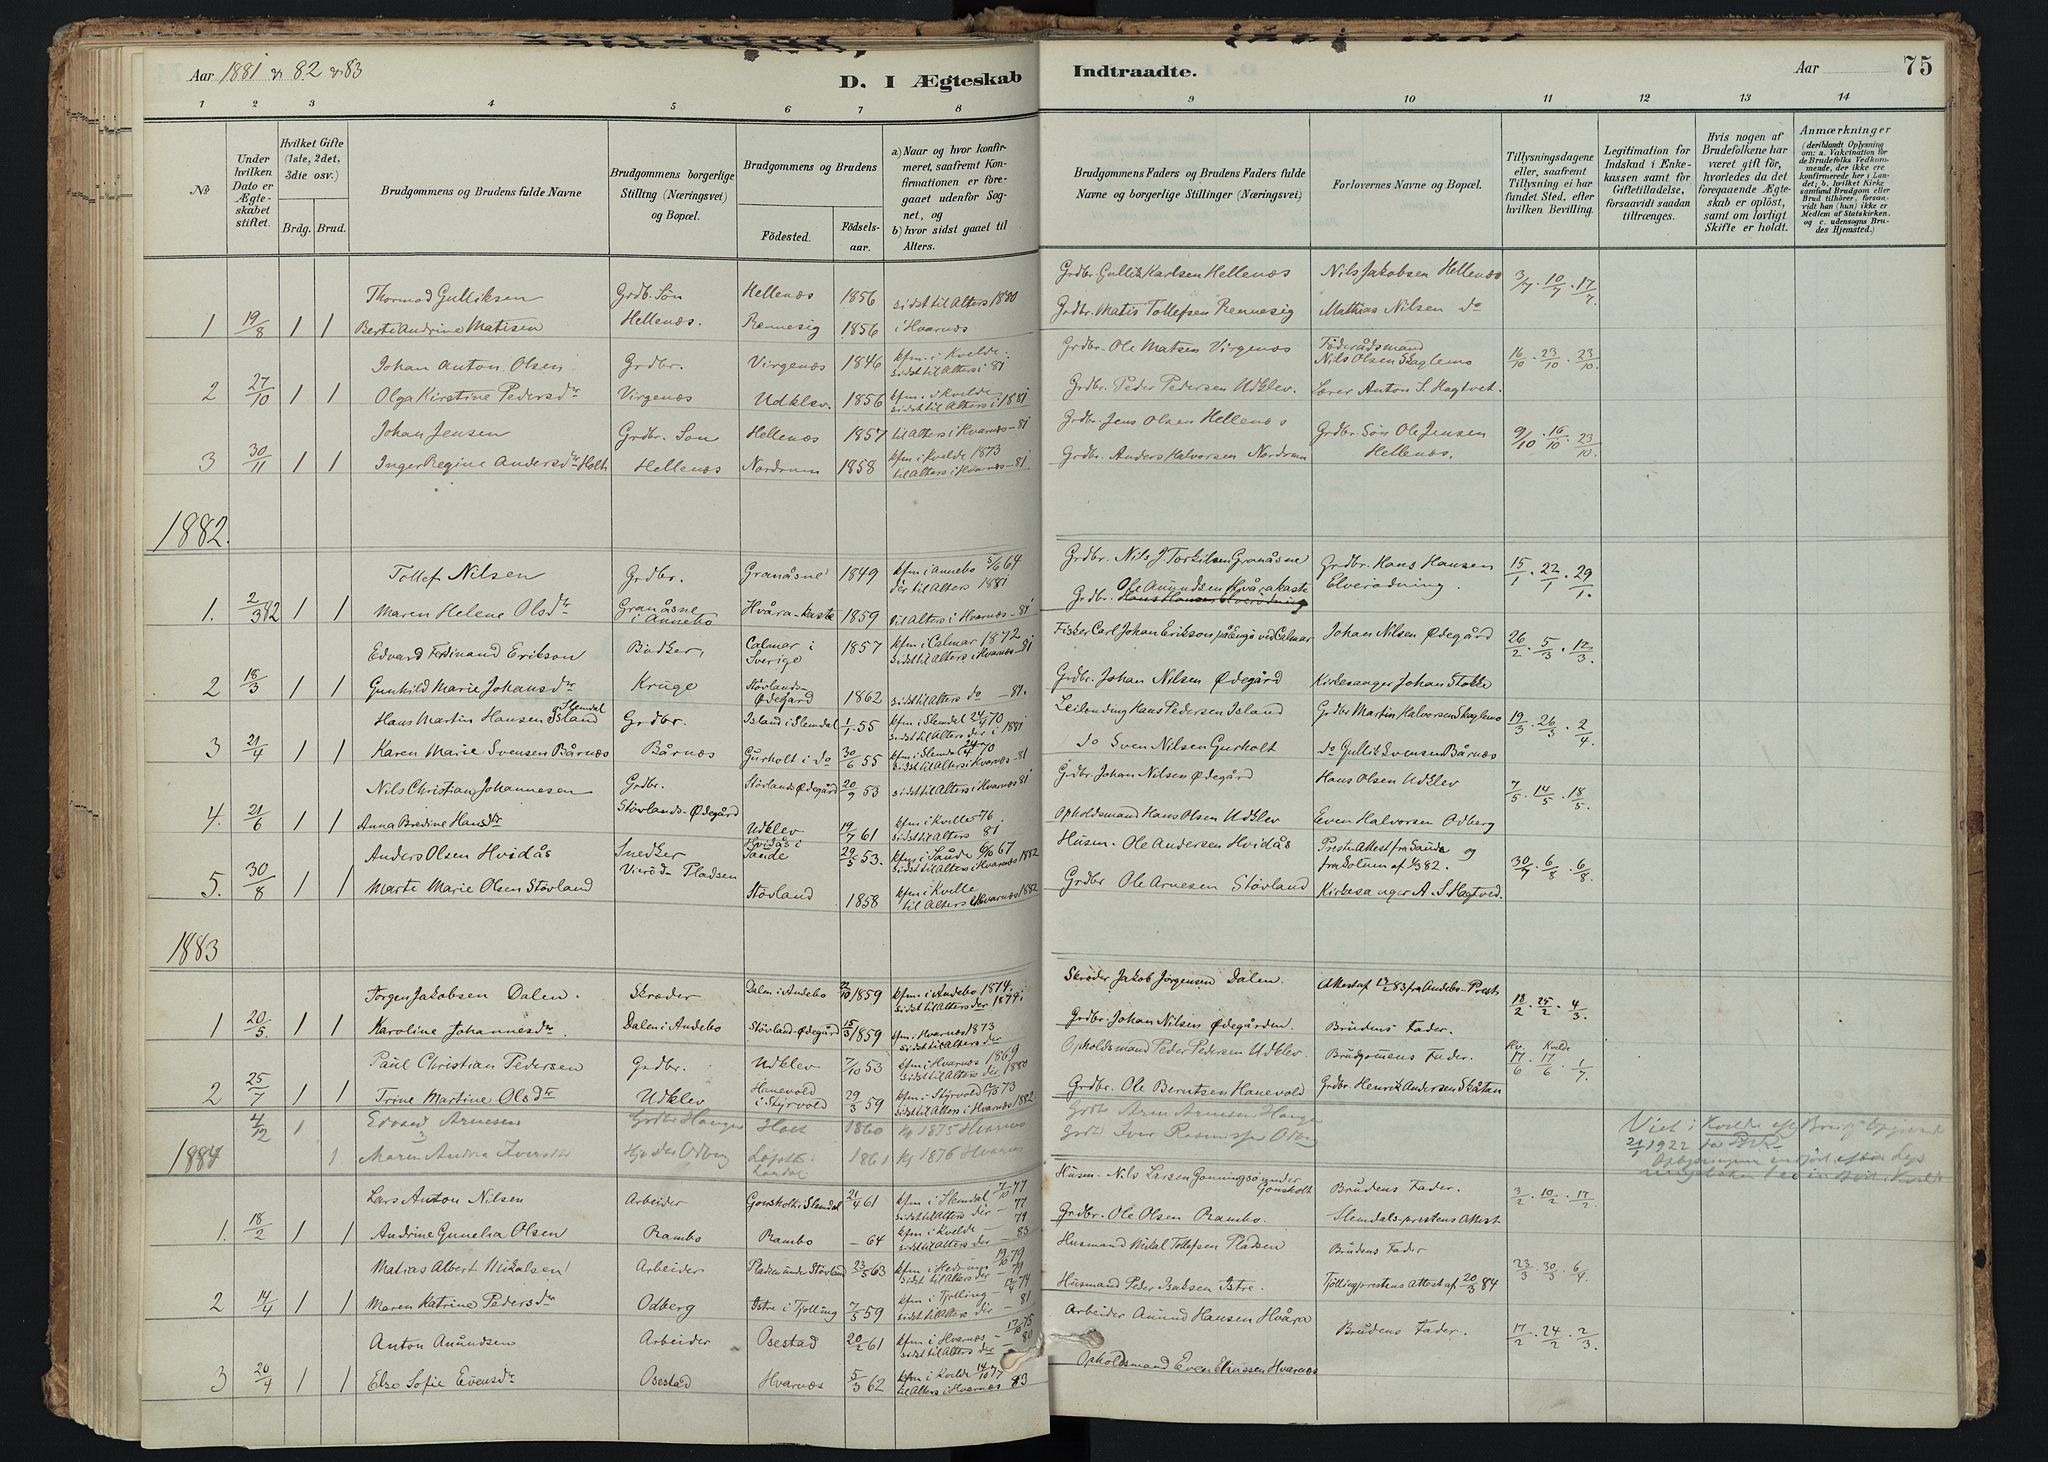 Aar 1881 & 82 & 83
D. I Ægteskab
Indtraadte.
Aar
75
1 2 3 4 5 6 7 8 9 10 11 12 13 14
No
Under hvilken Dato er Ægteskabet stiftet.
Hvilket Gifte (1ste, 2det, 3die osv.)
Brdg. Brud.
Brudgommens og Brudens fulde Navne
Brudgommens borgerlige Stillng (Næringsvei) og Bopæl.
Brudgommens og Brudens
Fødested. Fødselsaar.
a) Naar og hvor konfirmeret, saafremt Konfirmationen er foregaaet udenfor Sognet, og
b) hvor sidst gaaet til Alters.
Brudgommens Faders og Brudens Faders fulde Navne og borgerlige Stillinger (Næringsvei)
Forlovernes Navne og Bopæl.
Tillysningsdagene eller, saafremt Tillysning ei har fundet Sted, efter hvilken Bevilling.
Legitimation for Indskud i Enkekassen samt for Giftetilladelse, forsaavidt saadan tiltrænges.
Hvis nogen af Brudefolkene har været gift før, hvorledes da det foregaaende Ægteskab er opløst, samt om lovligt Skifte er holdt.
Anmærkninger (deriblandt Oplysning om: a. Vakcination for de Brudefolks Vedkommende, der ikke er konfirmerede her i Landet; b. hvilket Kirkesamfund Brudgom eller Brud tilhører, forsaavidt han (hun) ikke er Medlem af Statskirken, og c. udensogns Brudes Hjemsted.)
Thormod Gulliksen Grdb. Søn Hellenæs 1856 sidst til Alters 1880 Grdbr. Gullik Karlsen Hellenæs Nils Jakobsen Hellenæs 3/7 . 10/7 . 17/7.
1 19/8 1 1 Berte Andrine Matisen Hellenæs. Rennesig 1856 i Hvarnæs Grdbr. Matis Tollefsen Rennesig Mathias Nilsen do
Johan Anton Olsen Grdbr. Virgenæs 1846 kfm. i Kvelde. sidst til Alters i 81 Grdbr. Ole Matsen Virgenæs Föderådsmand Nils Olsen Skaglemo 16/10 . 23/10 . 23/10.
2 27/10 1 1 Olga Kirstine Pedersdtr Virgenæs Udklev. 1856 kfm. i Kvelde sidst til Alters i 1881 Grdbr. Peder Pedersen Udklev. Lærer Anton S. Hagtvet.
Johan Jensen Grdbr. Søn Hellenæs 1857 til Alters i Hvarnæs - 81 Grdbr. Jens Olsen Hellenæs Grdbr. Søn Ole Jensen 9/10 . 16/10 . 23/10
3 30/11 1 1 Inger Regine Andersdtr Holth Hellenæs Nordrum 1858 kfm i Kvelde 1873 til Alters i Hvarnæs - 81 Grdbr. Anders Halvorsen Nordrum Hellenæs.
1882.
Tollef Nilsen Grdbr. Granåsne 1849 kfm i Annebo 5/6 64 der til Alters 1881 Grdbr. Nils J Torkilsen Granåsne Grdbr. Hans Hansen 15/1 . 22/1 . 29/1.
1. 2/3 82 1 1 Maren Helene Olsdtr Granåsne i Annebo Hvåra-kaste 1859 til Alters i Hvarnæs - 81 Grdbr. Ole Amundsen Hvårakaste Elverødning.
Edvard Ferdinand Erikson Bødker, Calmar i Sverige 1857 kfm i Calmar 1872 sidst til Alters i Hvarnæs - 81 Fisker Carl Johan Erikson på Engö ved Calmar Johan Nilsen Ødegård 26/2 . 5/3 . 12/3.
2 18/3 1 1 Gunhild Marie Johansdtr Kruge Stövlands-Ødegård 1862 sidst til Alters do - 81. Grdbr. Johan Nilsen Ødegård Kirkesanger Johan Stokke
Hans Martin Hansen Island Slemdal Grdbr. Island i Slemdal 1/1 55 kfm i Slemdal 24/4 70 sidst til Alters der i 1881 Leilending Hans Pedersen Island Grdbr Martin Halvorsen Skaglemo 19/3 . 26/3 . 2/4
3 21/4 1 1 Karen Marie Svensen Bårnæs Bårnæs Gurholt i do 30/6 55 kfm i Slemdal 24/4 70 sidst til Alters i Hvarnæs - 81 Do Sven Nilsen Gurholt do Gullik Svensen Bårnæs
Nils Christian Johannesen Grdbr. Stövlands Ødegård 20/9 53 sidst til Alters i Hvarnæs 81 Grdbr. Johan Nilsen Ødegård Hans Olsen Udklev 7/5 . 14/5 . 18/5.
4. 21/6 1 1 Anna Bredine Hansdtr Stövlands-Ødegård Udklev 19/7 61 kfm i Kvelle 76. sidst til Alters 81 Opholdsmand Hans Olsen Udklev Even Halvorsen Odberg
Anders Olsen Hvidås Snedker Hvidås i Sande 29/5 53. kfm i Sånde 6/10 67 sidst til Alters i Hvarnæs 1882 Husm. Ole Andersen Hvidås Preste Attest fra Sande og 30/7 . 6/8 . 6/8.
5. 30/8 1 1 Marte Marie Olsen Stövland Pladsen Stövland 1858 kfm i Kvelle til Alters i Hvarnæs 1882 Grdbr Ole Arnesen Stövland Kirkesanger A. S. Hagtved.
1883
Jörgen Jakobsen Dalen. Skræder Dalen i Andebo 22/10 1859 kfm. i Andebo 1874. sidst til Alters der 1874. Skræder Jakob Jörgensen Dalen Attest af 13/2 83 fra Andebo-Prest 18/2 . 25/2 . 4/3.
1 20/5 1 1 Karoline Johannesdtr. Dalen i Andebo Stövland-Ødegård 15/3 1859 kfm. i Hvarnæs 1873 sidst til Alters der Grdbr. Johan Nilsen Ødegården. Brudens Fader.
Paul Christian Pedersen Grdbr. Udklev 7/10 53 kfm i Hvarnæs 1869 sidst til Alters der 1880 Opholdsmand Peder Pedersen Udklev. Brudgomens Fader. Kv. 17/6 . Kvelde 17/6 . 1/7.
2 25/7 1 1 Trine Martine Olsdtr Udklev Hanevold i Styrvold 29/3 59 kfm i Styrvold 12/10 73 sidst til Alters i Hvarnæs 1882 Grdbr. Ole Berntsen Hanevold Grdbr. Henrik Andersen Skåtan
4/12 1 Edvard Arnesen Grdbr Hanger Holt 1860 Kf 1875 Hvarnæs Grdbr Arne Arnesen Hange
1884 1 Maren Andrea Iversdtr Odberg Lardal 1861 Kf 1876 Hvarnæs Grdbr Iver Rasmussen Odb
Viet i Kvelde eft Brudg Opgivende
21/1 1922
Lars Anton Nilsen Arbeider Gonsholt i Slemdal 21/4 61 kfm i Slemdal 7/10 77 sidst til Alters der - 77 Husm. Nils Larsen Jonningsö under Gonsholt Brudens Fader. 3/2 . 10/2 . 17/2.
1. 18/2 1 1 Andrine Gunelia Olsen Rambo Rambo - 64 kfm i Kvelde - 79 sidst til Alters der - 83 Grdbr. Ole Olsen Rambo. Slemdals-prestens Attest
Matias Albert Mikalsen Arbeider Pladsen under Stövland 23/5 63 kfm i Hedrum 19/10 79 sidst til Alters der - 79 Husmand Mikal Tollefsen Pladsen Brudens Fader 23/3 . 30/3 . 6/4
2 14/4 1 1 Maren Katrine Pedersdtr Odberg Istre i Tjölling 7/5 59 kfm i Tjölling - 12/4 74 sidst til Alters der - 81 Husmand Peder Isaksen Istre. Tjöllingprestens Attest af 20/3 84
Anton Amundsen Arbeider Osestad 20/2 61 kfm i Hvarnæs - 17/10 75 sidst til Alters der - 80 Arbeider Amund Hansen Hvåra Brudens Fader. 17/2 . 24/2 . 2/3
3 20/4 1 1 Else Sofie Evensdtr Osestad Hvarnæs 5/3 62 kfm i Kvelde 14/10 77 til Alters i Hvarnæs 83 Opholdsmand Even Elnissen Hvarnæs